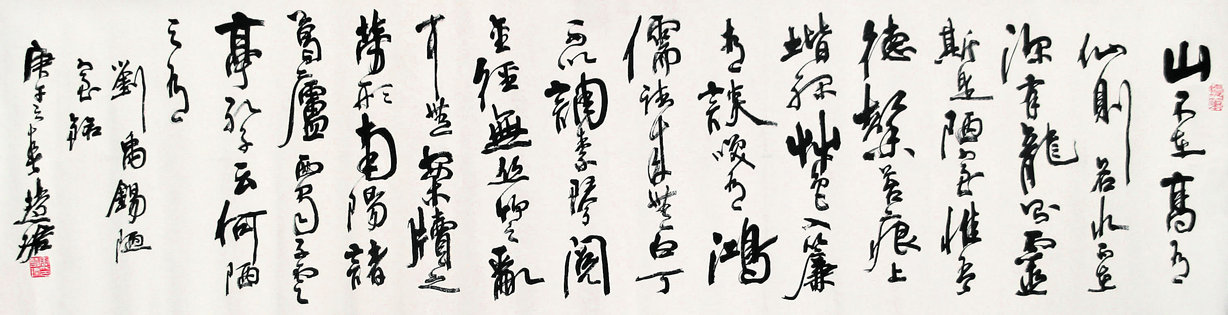 山不在高有
仙則名水不在
深有龍則靈
斯是陋室惟吾
德馨苔痕上
堦綠艸色入簾
青談笑有鴻
儒往來無白丁
可以調素琴閱
金經無絲竹之亂
耳無案牘之
勞形南陽諸
葛廬西蜀子雲
亭孔子云何陋
之有
劉禹錫陋
室銘
庚午之春